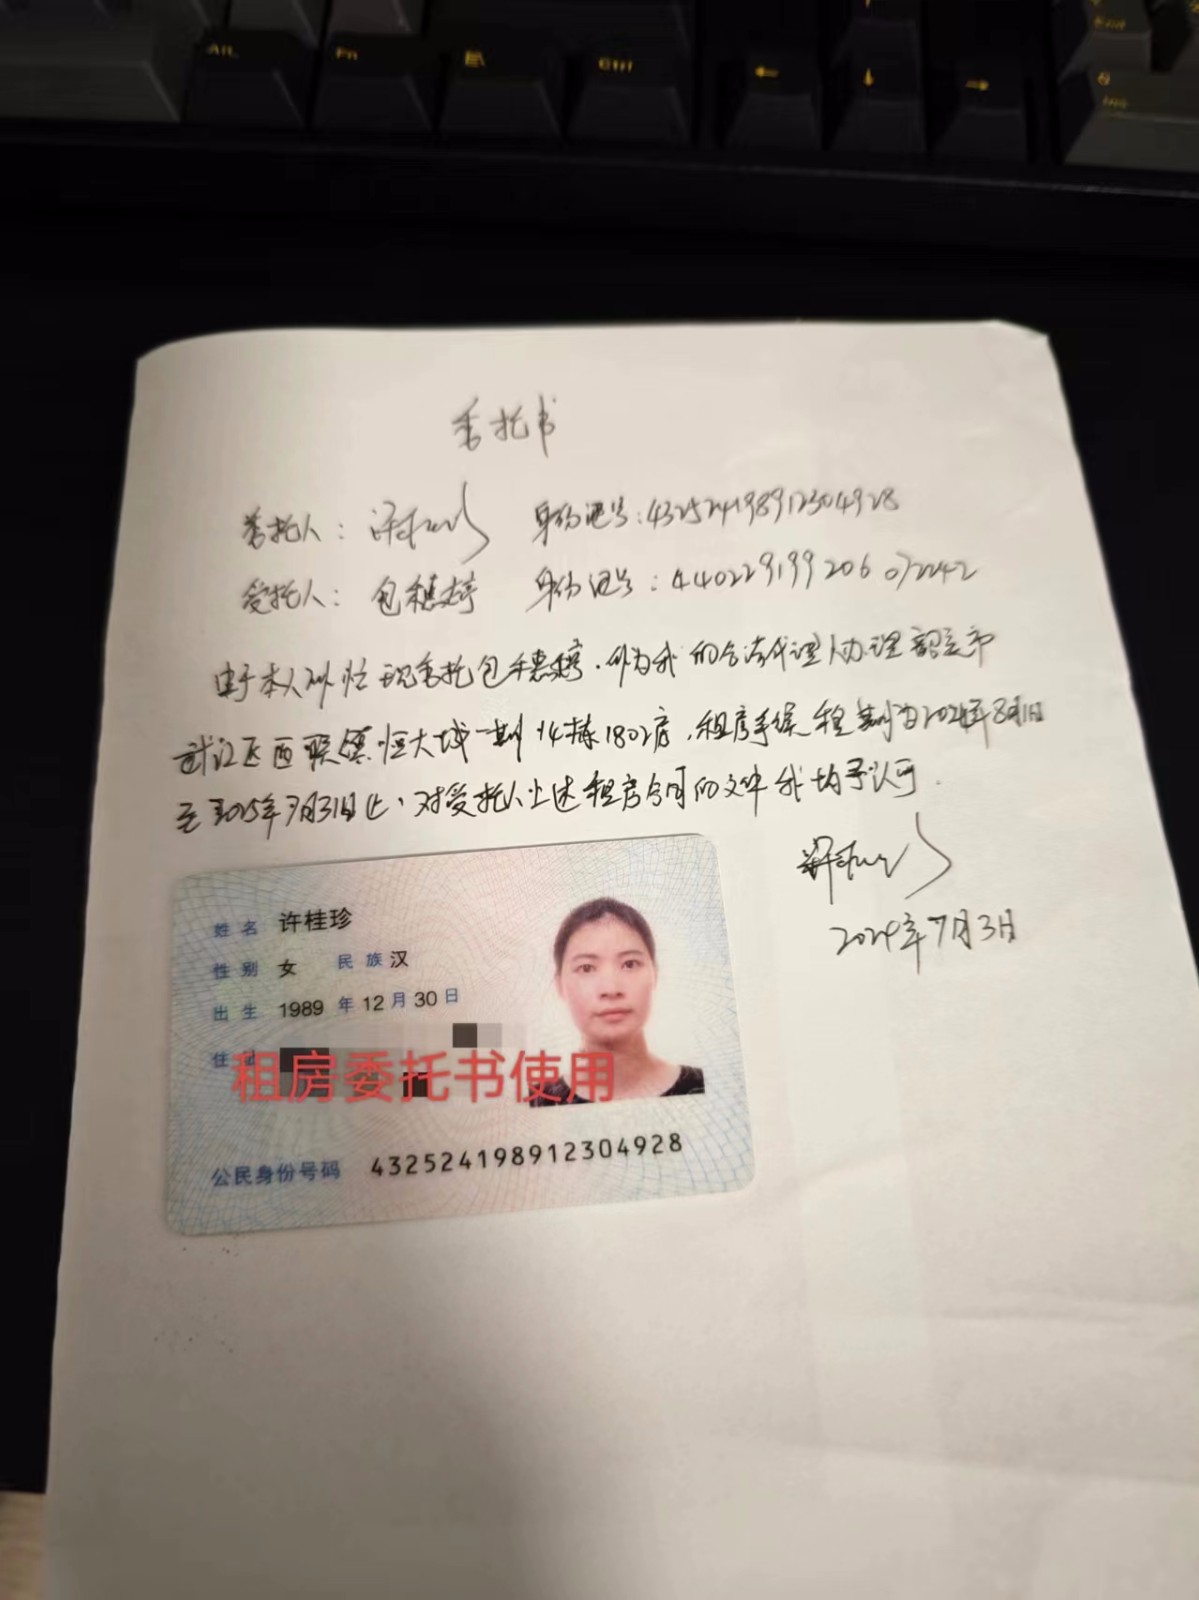 Alt
Fn
Ctrl
委托书
委托人： 身份证号:432524198912304928
受托人： 包穗婷 身份证号:440229199206072242
由于本人外忙现委托包千惠婷.作为我的合法代理人办理韶关市
武江区西联镇.恒大城一期14栋1802房,租房手续租期为2024年8月1日
至2025年7月31日止,对受托人上述租房合同的文件我均予认可.
2024年7月3日
姓名 许桂珍
性别 女 民族 汉
出生 1989 年 12 月 30 日
住址
租房委托书使用
公民身份号码 432524198912304928